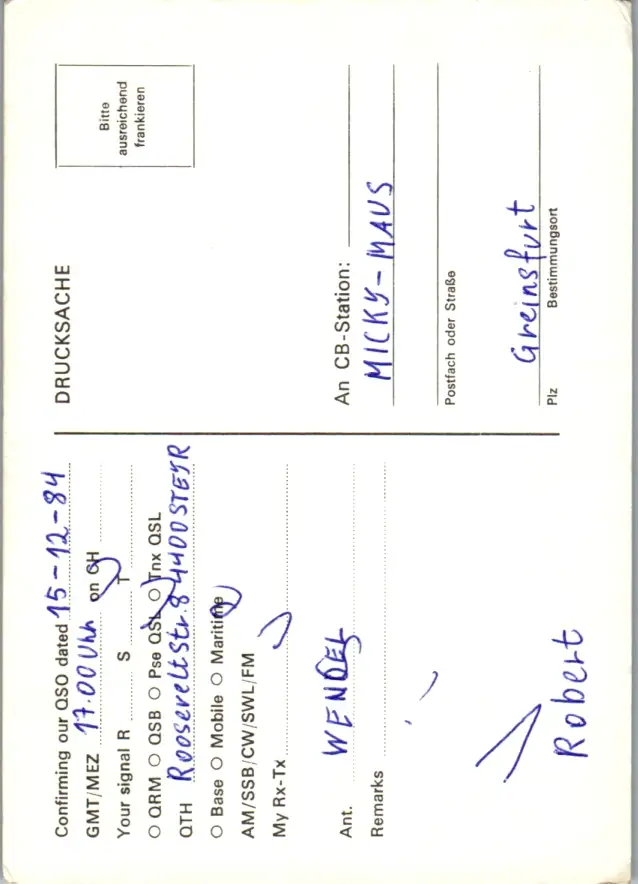 Confirming our QSO dated 15-12-84
GMT/MEZ 17.00 Uhr on CH
Your signal R S T
O QRM O QSB O Pse QSL O Tnx QSL
QTH Rooseveltstr.8 4400 STEYR
O Base O Mobile O Maritime
AM/SSB/CW/SWL/FM
My Rx-Tx
Ant. WENDEL
Remarks
Robert
DRUCKSACHE
Bitte
ausreichend
frankieren
An CB-Station:
MICKY-MAUS
Postfach oder Straße
Greinsfurt
Plz Bestimmungsort